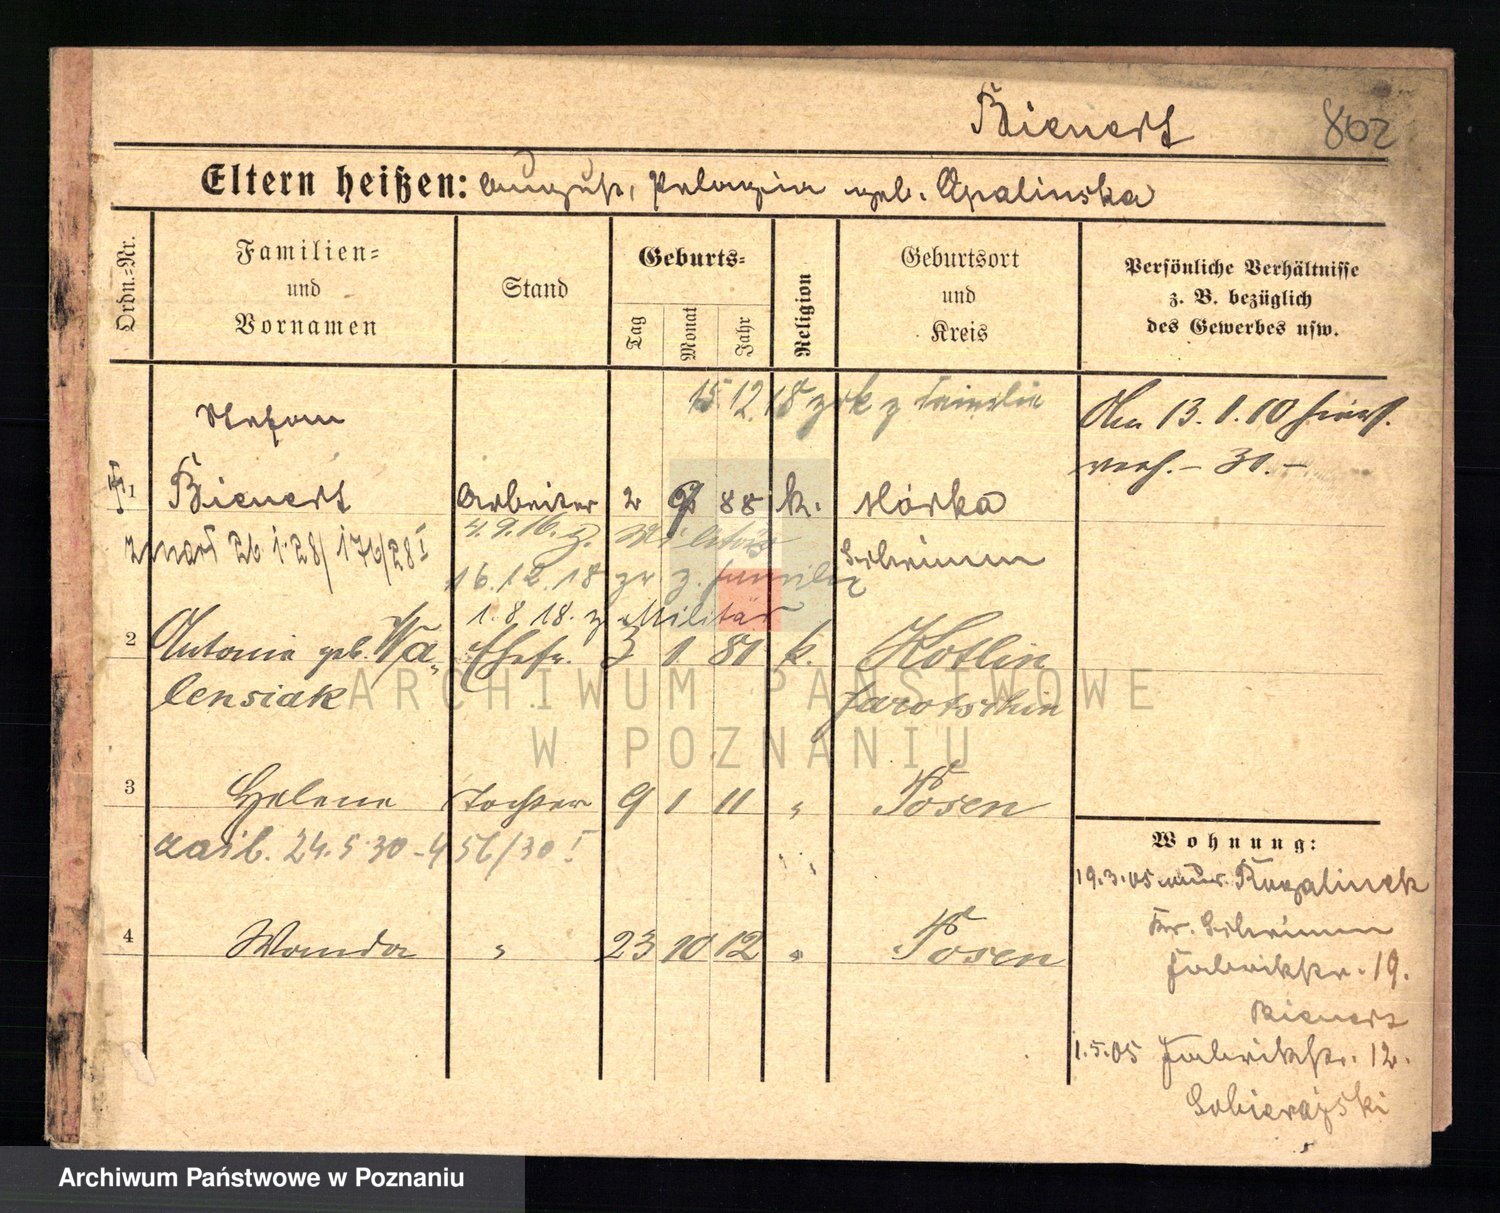 Bienert 802
Eltern heißen: August, Pelagia geb. Opalinska
Ordn.=Nr.
Familien=
und
Vornamen
Stand
Geburts=
Tag
Monat
Jahr
Religion
Geburtsort
und
Kreis
Persönliche Verhältnisse
z. B. bezüglich
des Gewerbes usw.
15.12.18 z familie
Stefan
Am 13. 1. 10 hier
verh. – 30. –
1 Bienert Arbeiter 2 9 88 k. Mórka
4.9.16. z. Militär
zmarł 26.1.28/176/28 I
Schrimm
16.12.18 z. familie
1.8.18. z Militär
2 Antonie geb. Wa= Ehefr. 3 1 81 k. Kotlin
lensiak Jarotschin
3 Helene Tochter 9 1 11 " Posen
24.5.30 - 456/30 I
4 Wanda " 23 10 12 " Posen
Wohnung:
19.3.05 Rogalinek
Kr. Schrimm
Fabrikstr. 19.
Bienert
1.5.05 Fabrikstr. 12.
Sobierajski
ARCHIWUM PAŃSTWOWE
W POZNANIU
Archiwum Państwowe w Poznaniu